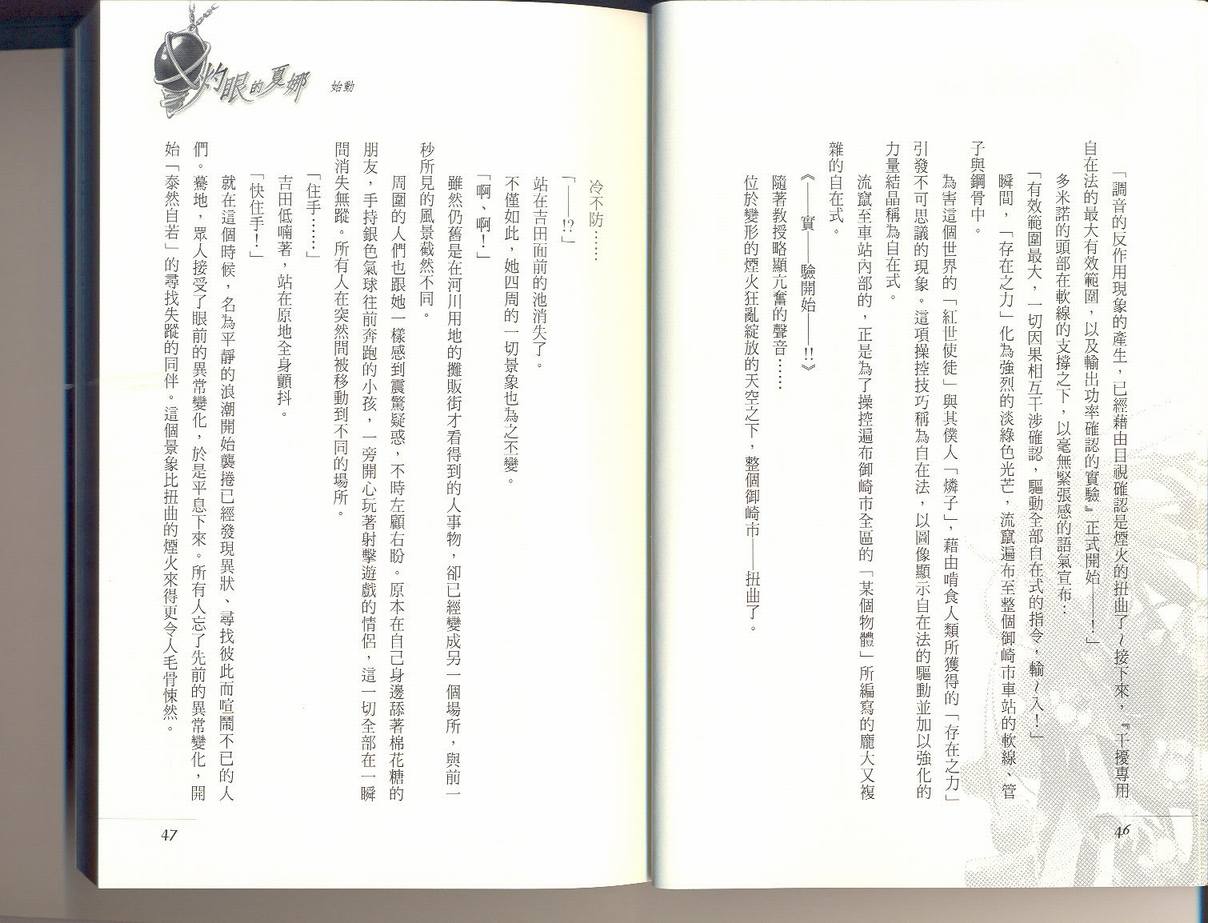 「調音的反作用現象的產生，已經藉由目視確認是煙火的扭曲了～接下來，『干擾專用
自在法的最大有效範圍，以及輸出功率確認的實驗』正式開始——！」
多米諾的頭部在軟線的支撐之下，以毫無緊張感的語氣宣布：
「有效範圍最大，一切因果相互干涉確認，驅動全部自在式的指令，輸～入！」
瞬間，「存在之力」化為強烈的淡綠色光芒，流竄遍布至整個御崎市車站的軟線、管
子與鋼骨中。
為害這個世界的「紅世使徒」與其僕人「燐子」，藉由啃食人類所獲得的「存在之力」
引發不可思議的現象。這項操控技巧稱為自在法，以圖像顯示自在法的驅動並加以強化的
力量結晶稱為自在式。
流竄至車站內部的，正是為了操控遍布御崎市全區的「某個物體」所編寫的龐大又複
雜的自在式。
《——實——驗開始——!!》
隨著教授略顯亢奮的聲音……
位於變形的煙火狂亂綻放的天空之下，整個御崎市——扭曲了。
46
灼眼的夏娜 始動
冷不防……
「——!?」
站在吉田面前的池消失了。
不僅如此，她四周的一切景象也為之丕變。
「啊、啊！」
雖然仍舊是在河川用地的攤販街才看得到的人事物，卻已經變成另一個場所，與前一
秒所見的風景截然不同。
周圍的人們也跟她一樣感到震驚疑惑，不時左顧右盼。原本在自己身邊舔著棉花糖的
朋友，手持銀色氣球往前奔跑的小孩，一旁開心玩著射擊遊戲的情侶，這一切全部在一瞬
間消失無蹤。所有人在突然間被移動到不同的場所。
「住手……」
吉田低喃著，站在原地全身顫抖。
「快住手！」
就在這個時候，名為平靜的浪潮開始襲捲已經發現異狀、尋找彼此而喧鬧不已的人
們。驀地，眾人接受了眼前的異常變化，於是平息下來。所有人忘了先前的異常變化，開
始「泰然自若」的尋找失蹤的同伴。這個景象比扭曲的煙火來得更令人毛骨悚然。
47